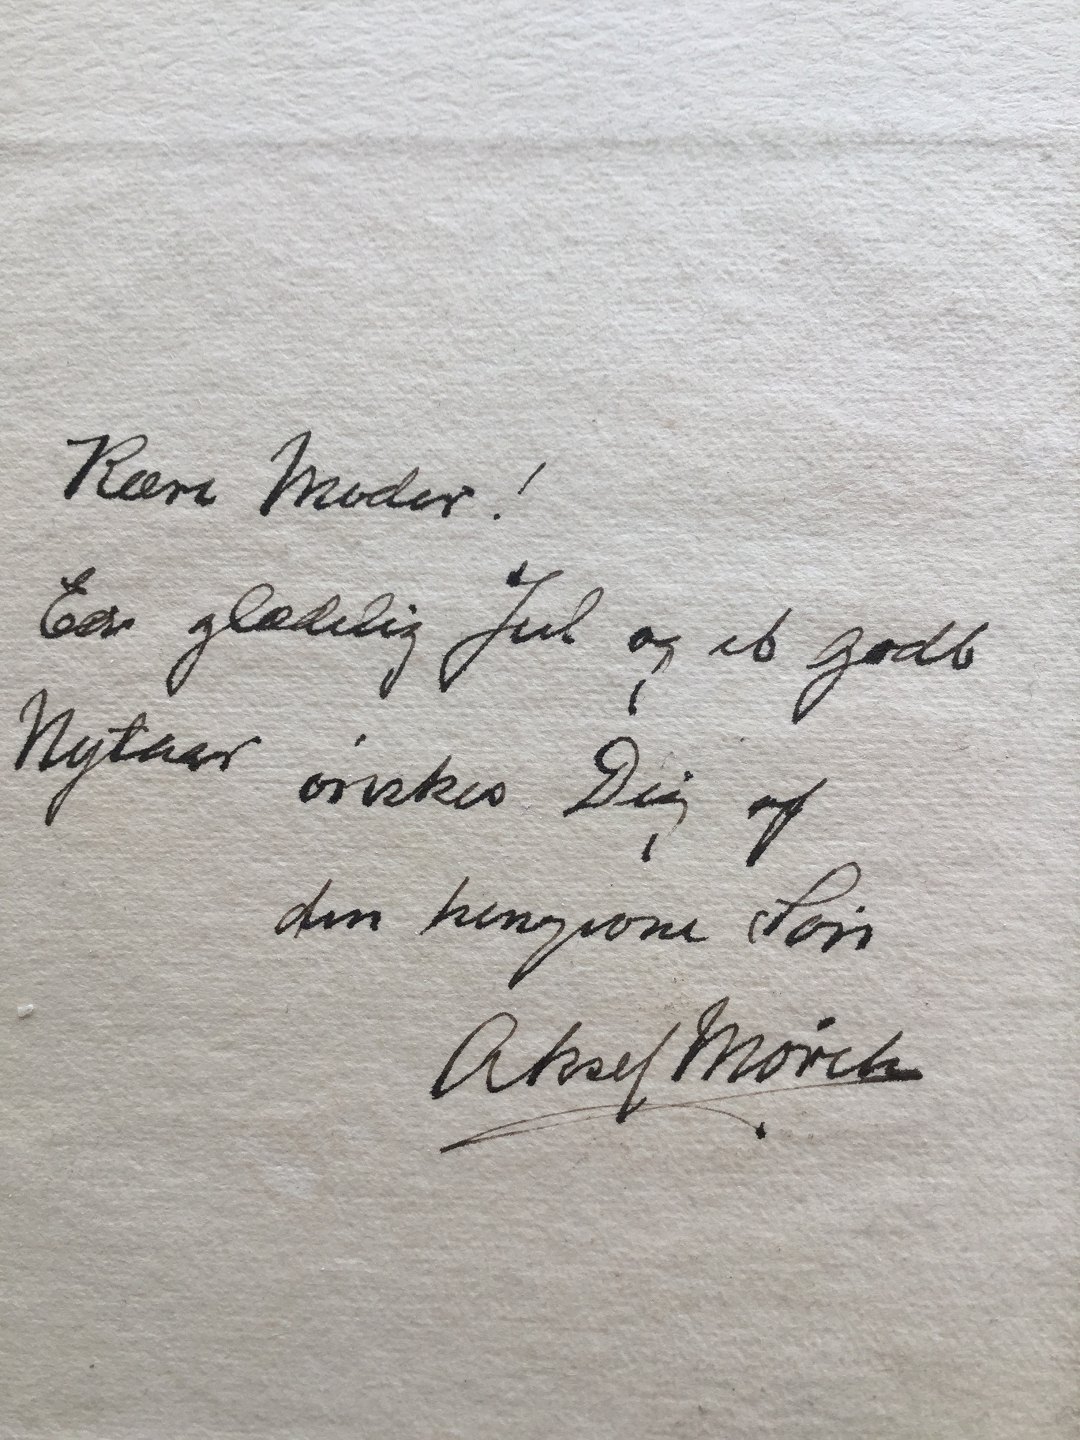 Kære Moder!
Een glædelig Jul og et godt
Nytaar önskes Dig af
din hengivne Sön
Aksel Mörch